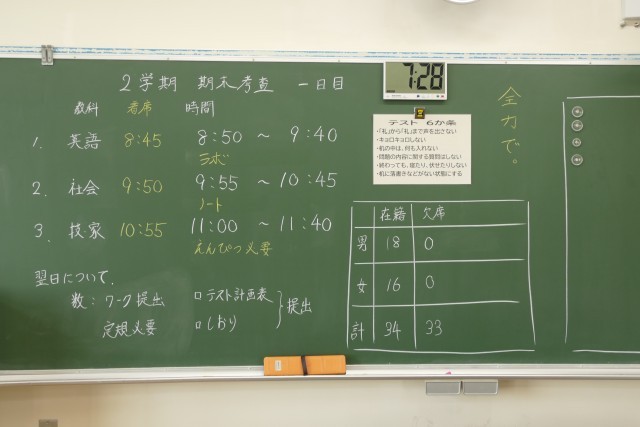 2学期 期末考査 一日目
教科 着席 時間
1. 英語 8:45 8:50 ~ 9:40
ラボど
2. 社会 9:50 9:55 ~ 10:45
ノート
3. 技家 10:55 11:00 ~ 11:40
えんぴつ必要
翌日について.
数:ワーク提出
定規必要
□テスト計画表
□しおり
提出
7:28
テスト 6か条
・「礼」から「礼」まで声を出さない
・キョロキョロしない
・机の中は、何も入れない
・問題の内容に関する質問はしない
・終わっても、寝たり、伏せたりしない
・机に落書きなどがない状態にする
全力で。
在籍 欠席
男 18 0
女 16 0
計 34 33